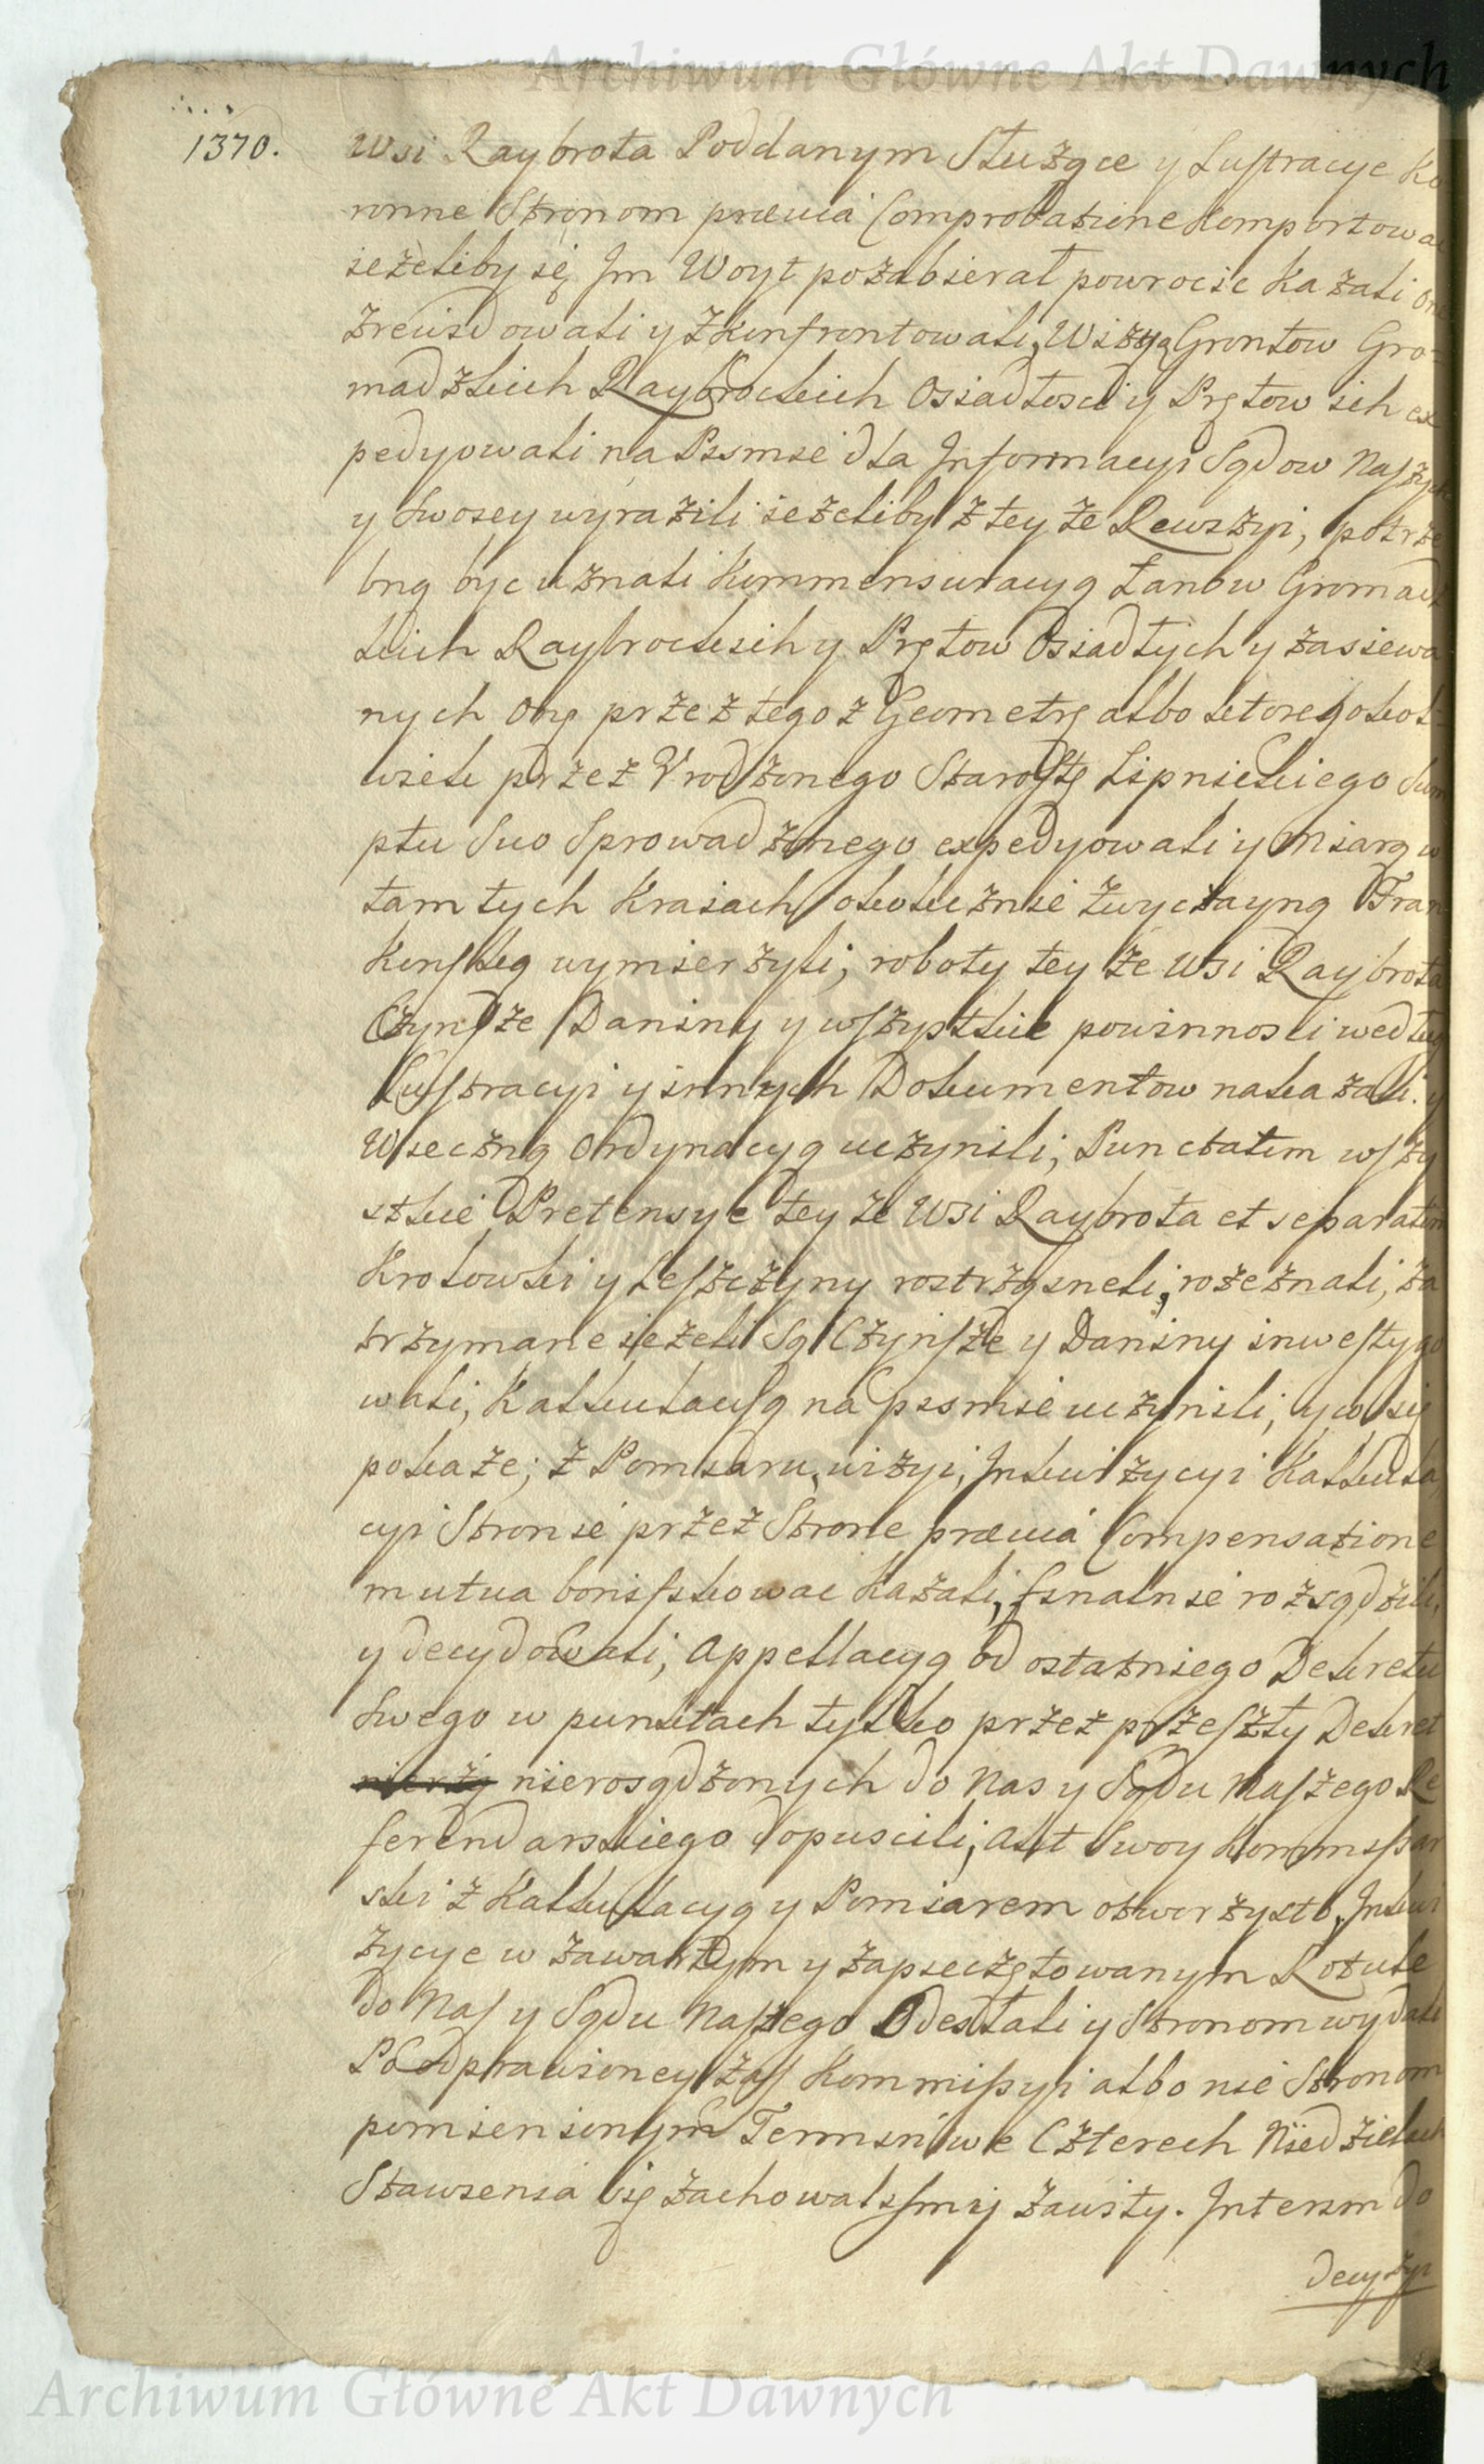 Archiwum Główne Akt Dawnych
1370.
Wsi Raybrota Poddanym Służące y Lustracye Ko
ronne Stronom prævia Comprobatione komportowac
ieżeliby się Jm Woyt pozabierał powrocic kazali one
zrewidowali y zkonfrontowali, Wizyą Grontow Gro-
madzkich Raybrockich Osiadłosci y Prętow ich ex
pedyowali na Pismie dla Informacyi Sądow Naszych
y swoiey wyrazili ieżeliby z tey że Rewizyi, potrze
bną byc uznali kommensuracyą Łanow Gromadz
kich Raybrockich y Prętow Osiadłych y zasiewa
nych onę przez tegoż Geometrę albo ktoregokol-
wiek przez Vrodzonego Starostę Lipnickiego Sum
ptu Suo Sprowadzonego expedyowali y Miarą w
tamtych Kraiach okolicznie zwyczayną Fran
kenską wymierzyli, roboty tey że Wsi Raybrota
Czynsze Daniny y wszystkie powinnosci według
Lustracyi y innych Dokumentow nakazali. y
Wieczną Ordynacyą uczynili, Punctatim wszy
stkie Pretensye tey że Wsi Raybrota et separatim
Krolowki y Leszczyny rostrząsneli, rozeznali, za
trzymane ieżeli Są Czynsze y Daniny inwestygo
wali, Kalkulacyą na pismie uczynili, y co się
pokaże; z Pomiaru, wizyi, Inkwizycyi Kalkula
cyi Stronie przez Strone prævia Compensatione
mutua bonifikowac kazali, finalnie rozsądzili,
y decydowali, Appellacyą od ostatniego Dekretu
Swego w punktach tylko przez przeszły Dekret
nierosądzonych do Nas y Sądu Naszego Re
ferendarskiego dopuscili, Akt Swoy Kommissar
ski z Kalkulacyą y Pomiarem otworzysto, Inkwi
zycye w zawartym y zapieczętowanym Rotule
do Nas y Sądu Naszego Odesłali y Stronom wydali
Po odprawioney zaś Kommissyi albo nie Stronom
pomienionym Termin we Czterech Niedzielach
Stawienia się zachowalismy zawity. Interim do
decyzyi
Archiwum Główne Akt Dawnych